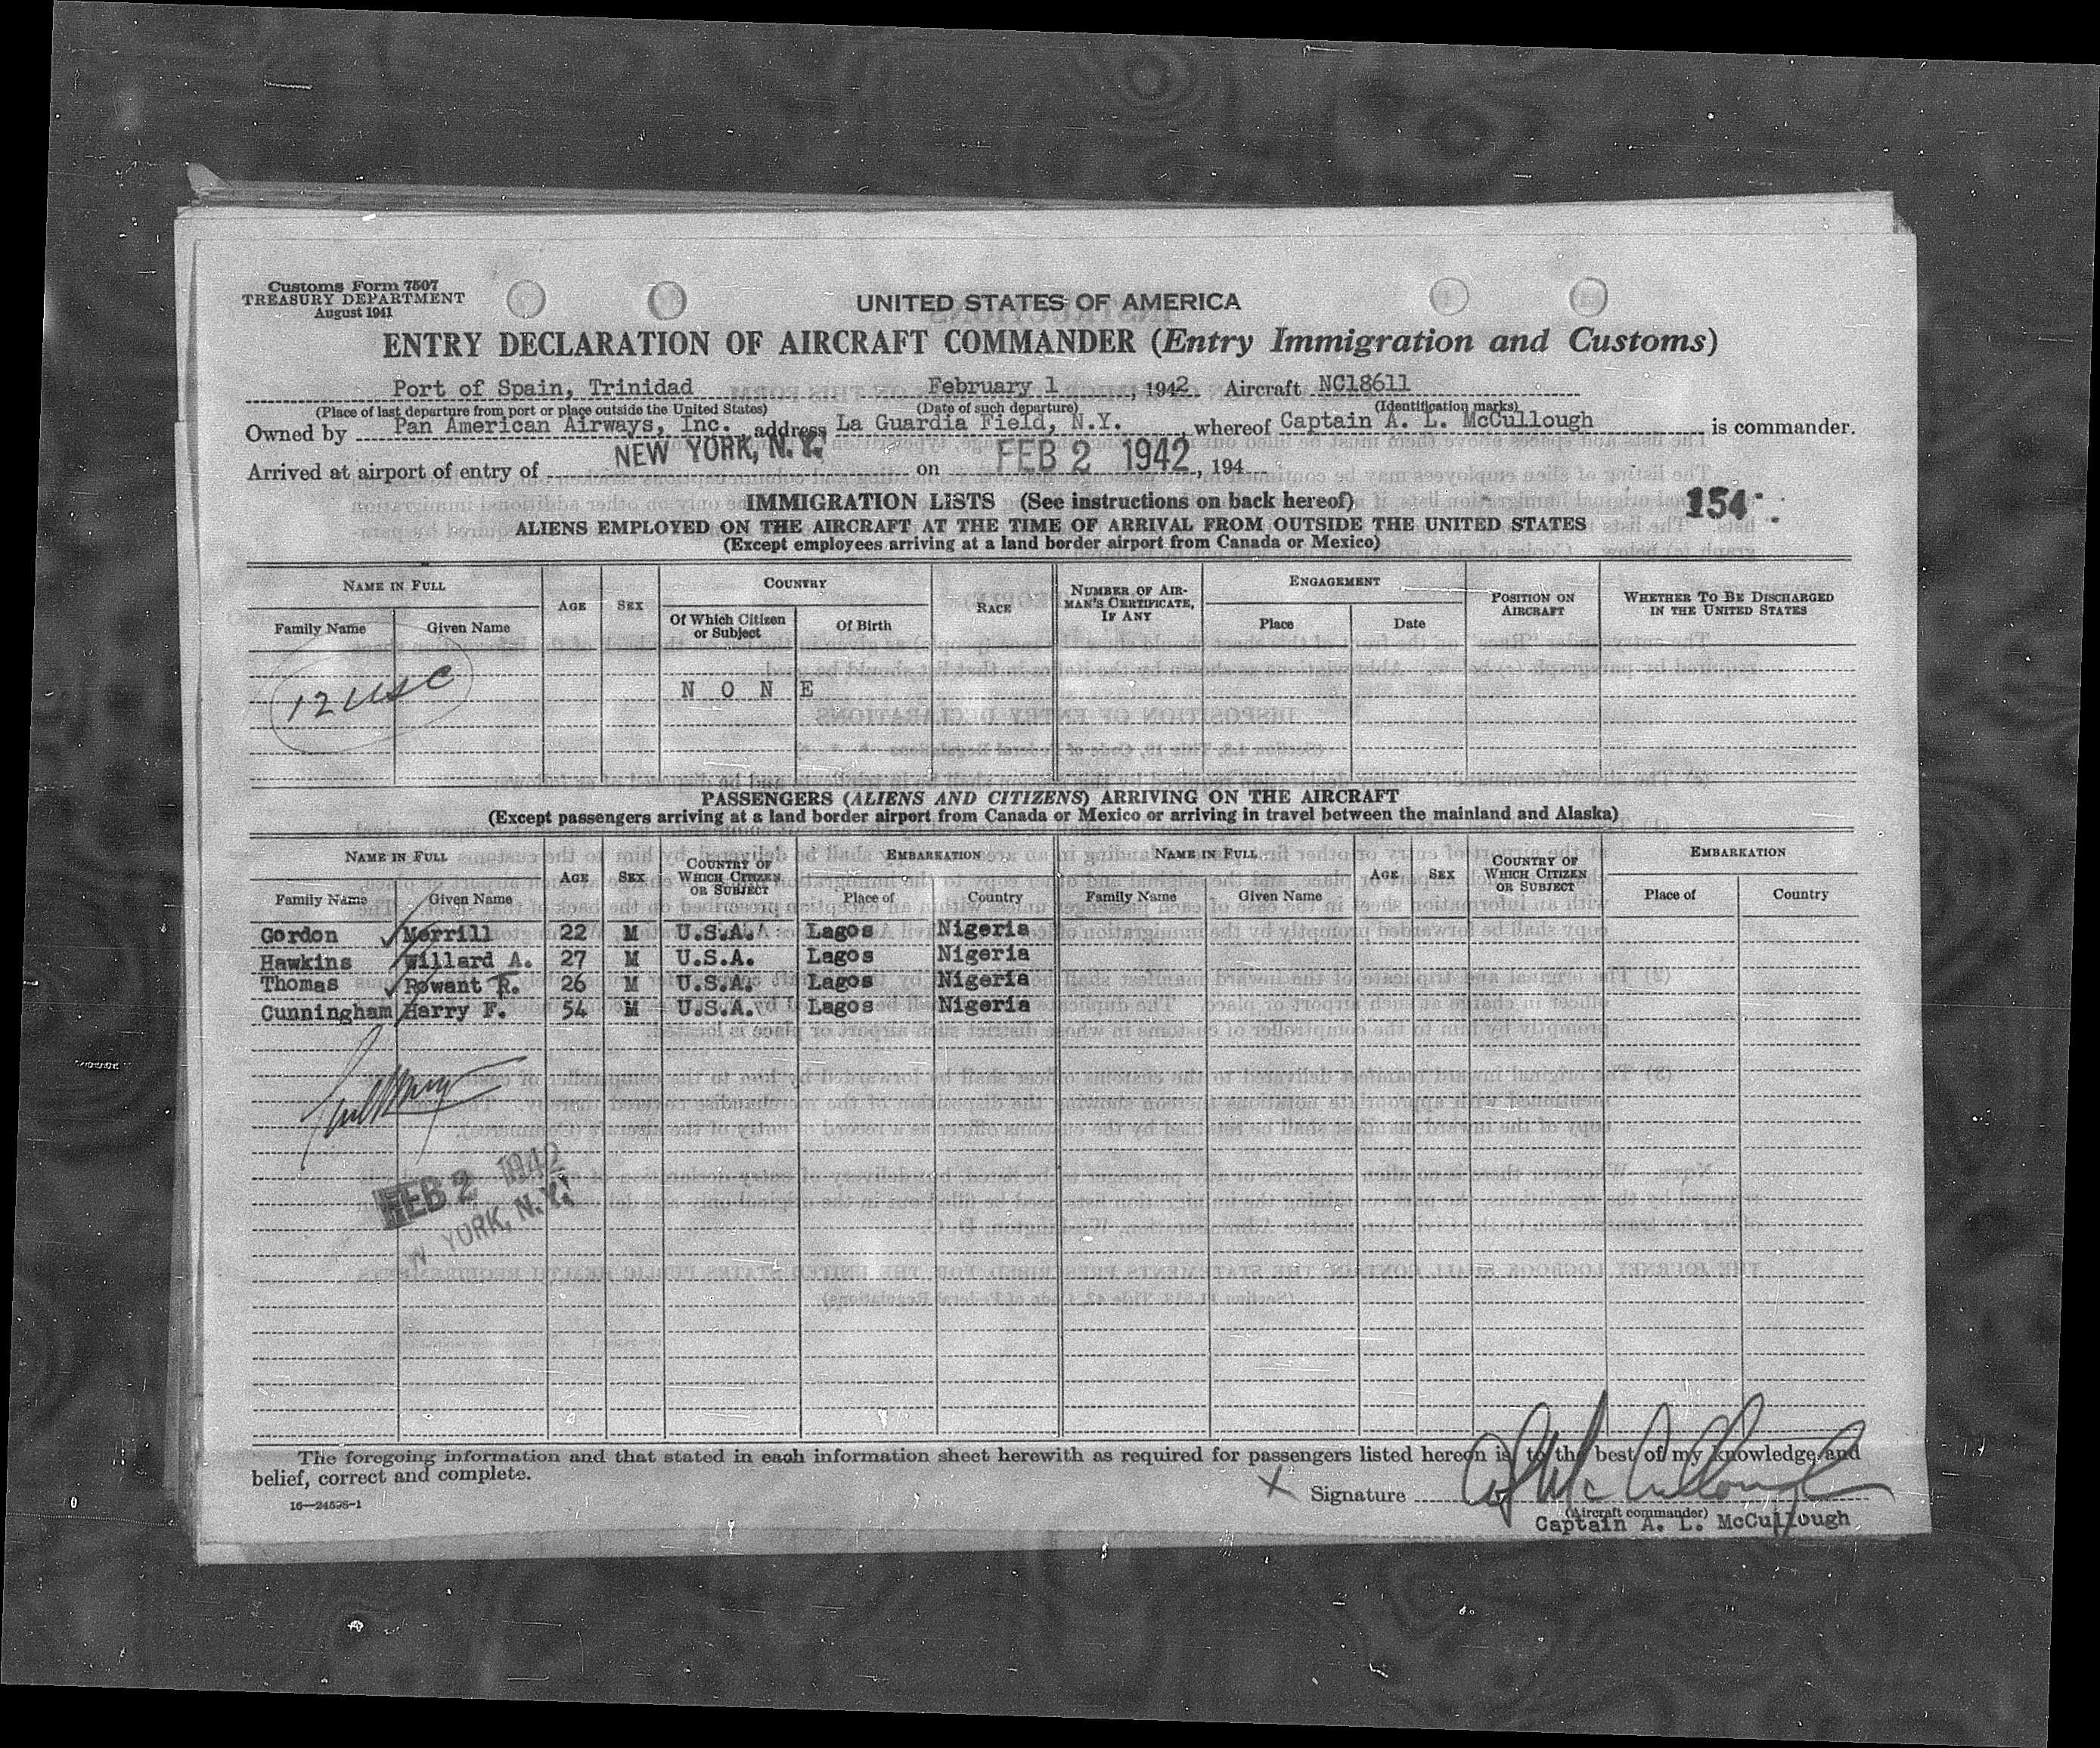 Customs Form 7507
TREASURY DEPARTMENT
August 1941
UNITED STATES OF AMERICA
ENTRY DECLARATION OF AIRCRAFT COMMANDER (Entry Immigration and Customs)
Port of Spain, Trinidad February 1, 1942 Aircraft NC18611
(Place of last departure from port or place outside the United States) (Date of such departure) (Identification marks)
Owned by Pan American Airways, Inc. address La Guardia Field, N.Y. whereof Captain A. L. McCullough is commander.
Arrived at airport of entry of NEW YORK, N.Y. on FEB 2 1942, 194
IMMIGRATION LISTS (See instructions on back hereof) 154
ALIENS EMPLOYED ON THE AIRCRAFT AT THE TIME OF ARRIVAL FROM OUTSIDE THE UNITED STATES
(Except employees arriving at a land border airport from Canada or Mexico)
NAME IN FULL AGE SEX COUNTRY RACE NUMBER OF AIRMAN'S CERTIFICATE, IF ANY ENGAGEMENT POSITION ON AIRCRAFT WHETHER TO BE DISCHARGED IN THE UNITED STATES
Family Name Given Name Of Which Citizen or Subject Of Birth Place Date
12 USC
N O N E
PASSENGERS (ALIENS AND CITIZENS) ARRIVING ON THE AIRCRAFT
(Except passengers arriving at a land border airport from Canada or Mexico or arriving in travel between the mainland and Alaska)
NAME IN FULL AGE SEX COUNTRY OF WHICH CITIZEN OR SUBJECT EMBARKATION NAME IN FULL AGE SEX COUNTRY OF WHICH CITIZEN OR SUBJECT EMBARKATION
Family Name Given Name Place of Country Family Name Given Name Place of Country
Gordon Merrill 22 M U.S.A. Lagos Nigeria
Hawkins Willard A. 27 M U.S.A. Lagos Nigeria
Thomas Rowant R. 26 M U.S.A. Lagos Nigeria
Cunningham Harry F. 54 M U.S.A. Lagos Nigeria
FEB 2 1942
W YORK, N.Y.
The foregoing information and that stated in each information sheet herewith as required for passengers listed hereon is, to the best of my knowledge and
belief, correct and complete.
16—24595-1
X Signature A L McCullough
(Aircraft commander)
Captain A. L. McCullough